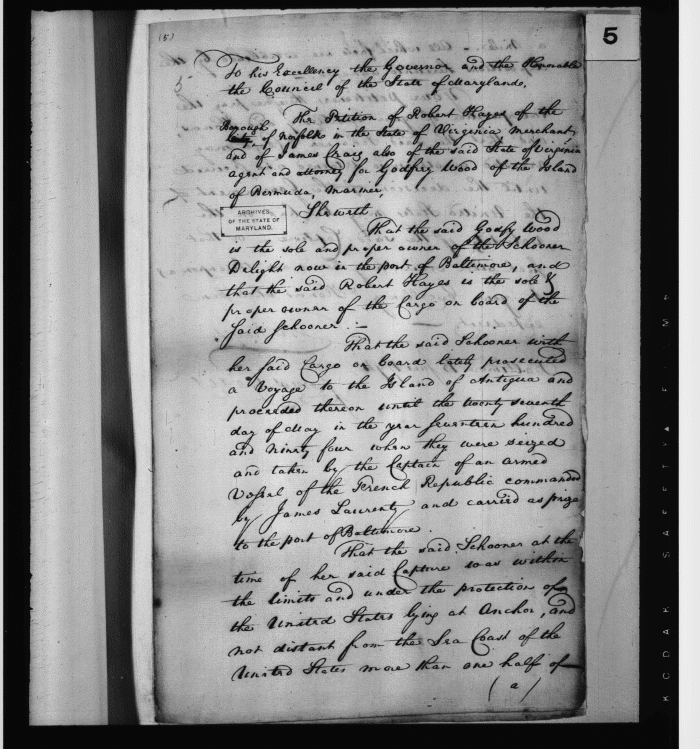 (5)
5
To his Excellency the Governor and the Honorable
the Council of the State of Maryland,
The Petition of Robert Hayes of the
Borough of Norfolk in the State of Virginia merchant,
and of James Craig also of the said State of Virginia
agent and attorney for Godfrey Wood of the Island
of Bermuda, Mariner,
ARCHIVES
OF THE STATE OF
MARYLAND.
Sheweth
That the said Godfy Wood
is the sole and proper owner of the Schooner
Delight now in the port of Baltimore, and
that the said Robert Hayes is the sole &
proper owner of the Cargo on board of the
said Schooner. :—
That the said Schooner with
her said Cargo on board lately prosecuted
a Voyage to the Island of Antigua and
proceeded thereon until the twenty seventh
day of May in the year seventeen hundred
and ninety four when they were seized
and taken by the Captain of an armed
Vessel of the French Republic commanded
by James Laurenty and carried as prize
to the port of Baltimore.
That the said Schooner at the
time of her said Capture was within
the limits and under the protection of
the United States lying at Anchor, and
not distant from the Sea Coast of the
United States more than one half of
(a)
KODAK SAFETY FILM